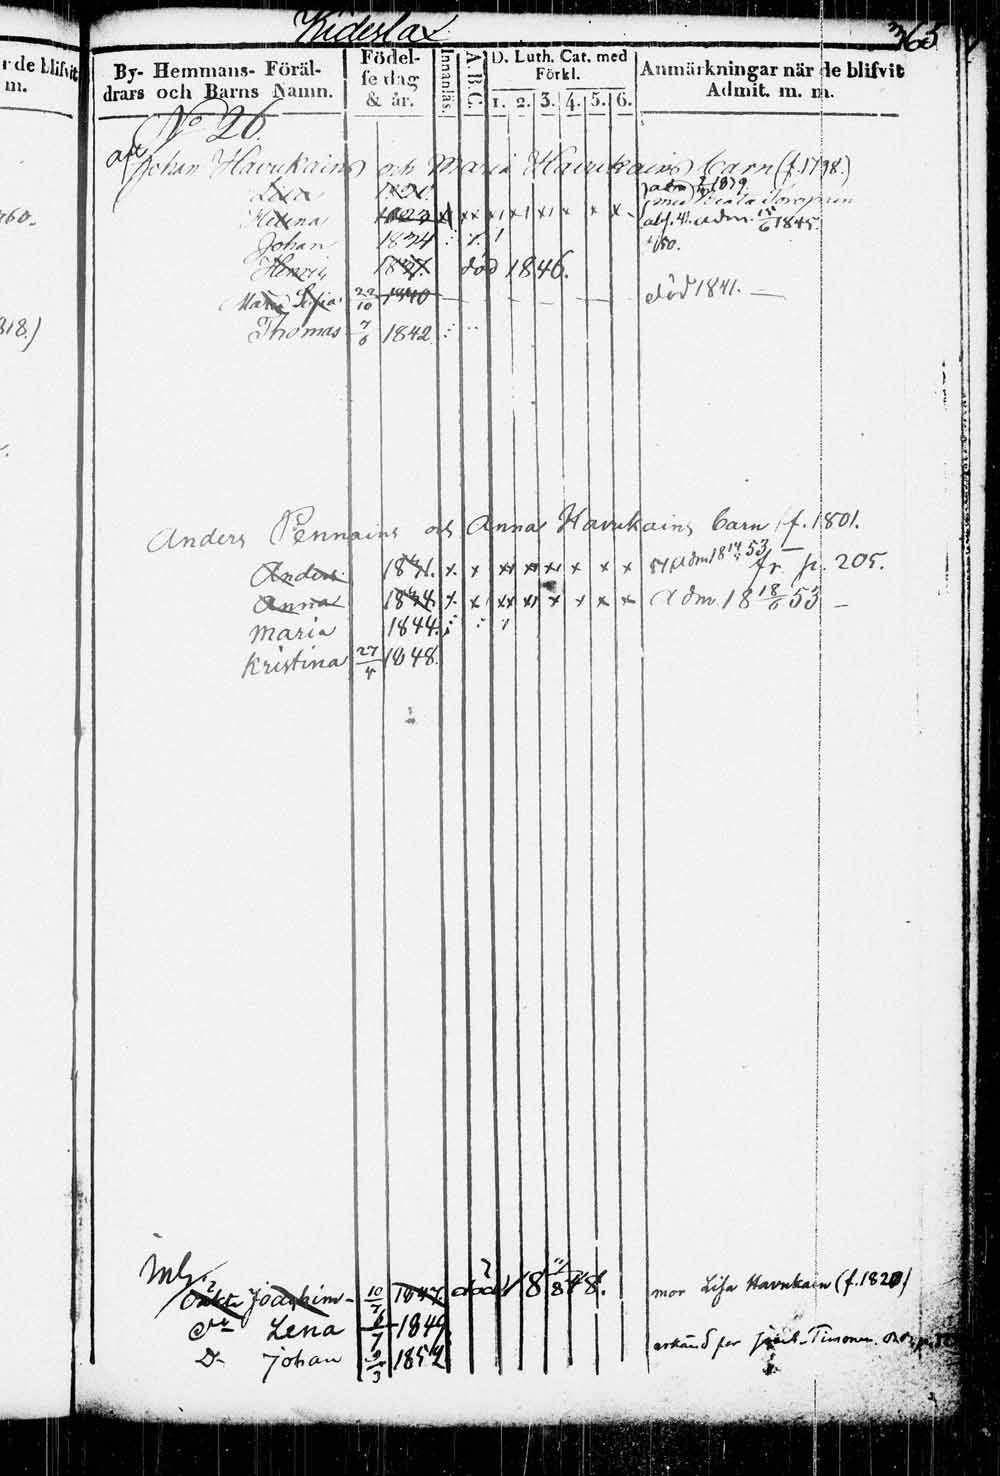 Kideslax 365
r de blifvit
m.
By- Hemmans- Föräl-
drars och Barns Namn.
Födel-
se dag
& år.
Innanläs.
A.B.C.
D. Luth. Cat. med
Förkl.
1. 2. 3. 4. 5. 6.
Anmärkningar när de blifvit
Admit. m. m.
No 26.
Johan Havukains och Maria Havukains barn (f. 1798.)
adm 1839.
Helena 1823 x x x x x x x x adm. 15/6 1845.
Johan 1834
Henric 1837. död 1846.
Maria Sofia 22/10 1840 död 1841. —
Thomas 7/6 1842
318.)
Anders Pennains och Anna Havukains barn f. 1801.
Anders x x x x x x x x fr p. 205.
Anna 1838. x x x x x x x x Adm. 18 18/6 53 —
Maria 1844.
Kristina 27/4 1848.
Joachim 10/7 1847. död 18 11/8 48. mor Lisa Havukain (f. 1820)
Lena 1849
D- Johan 1852